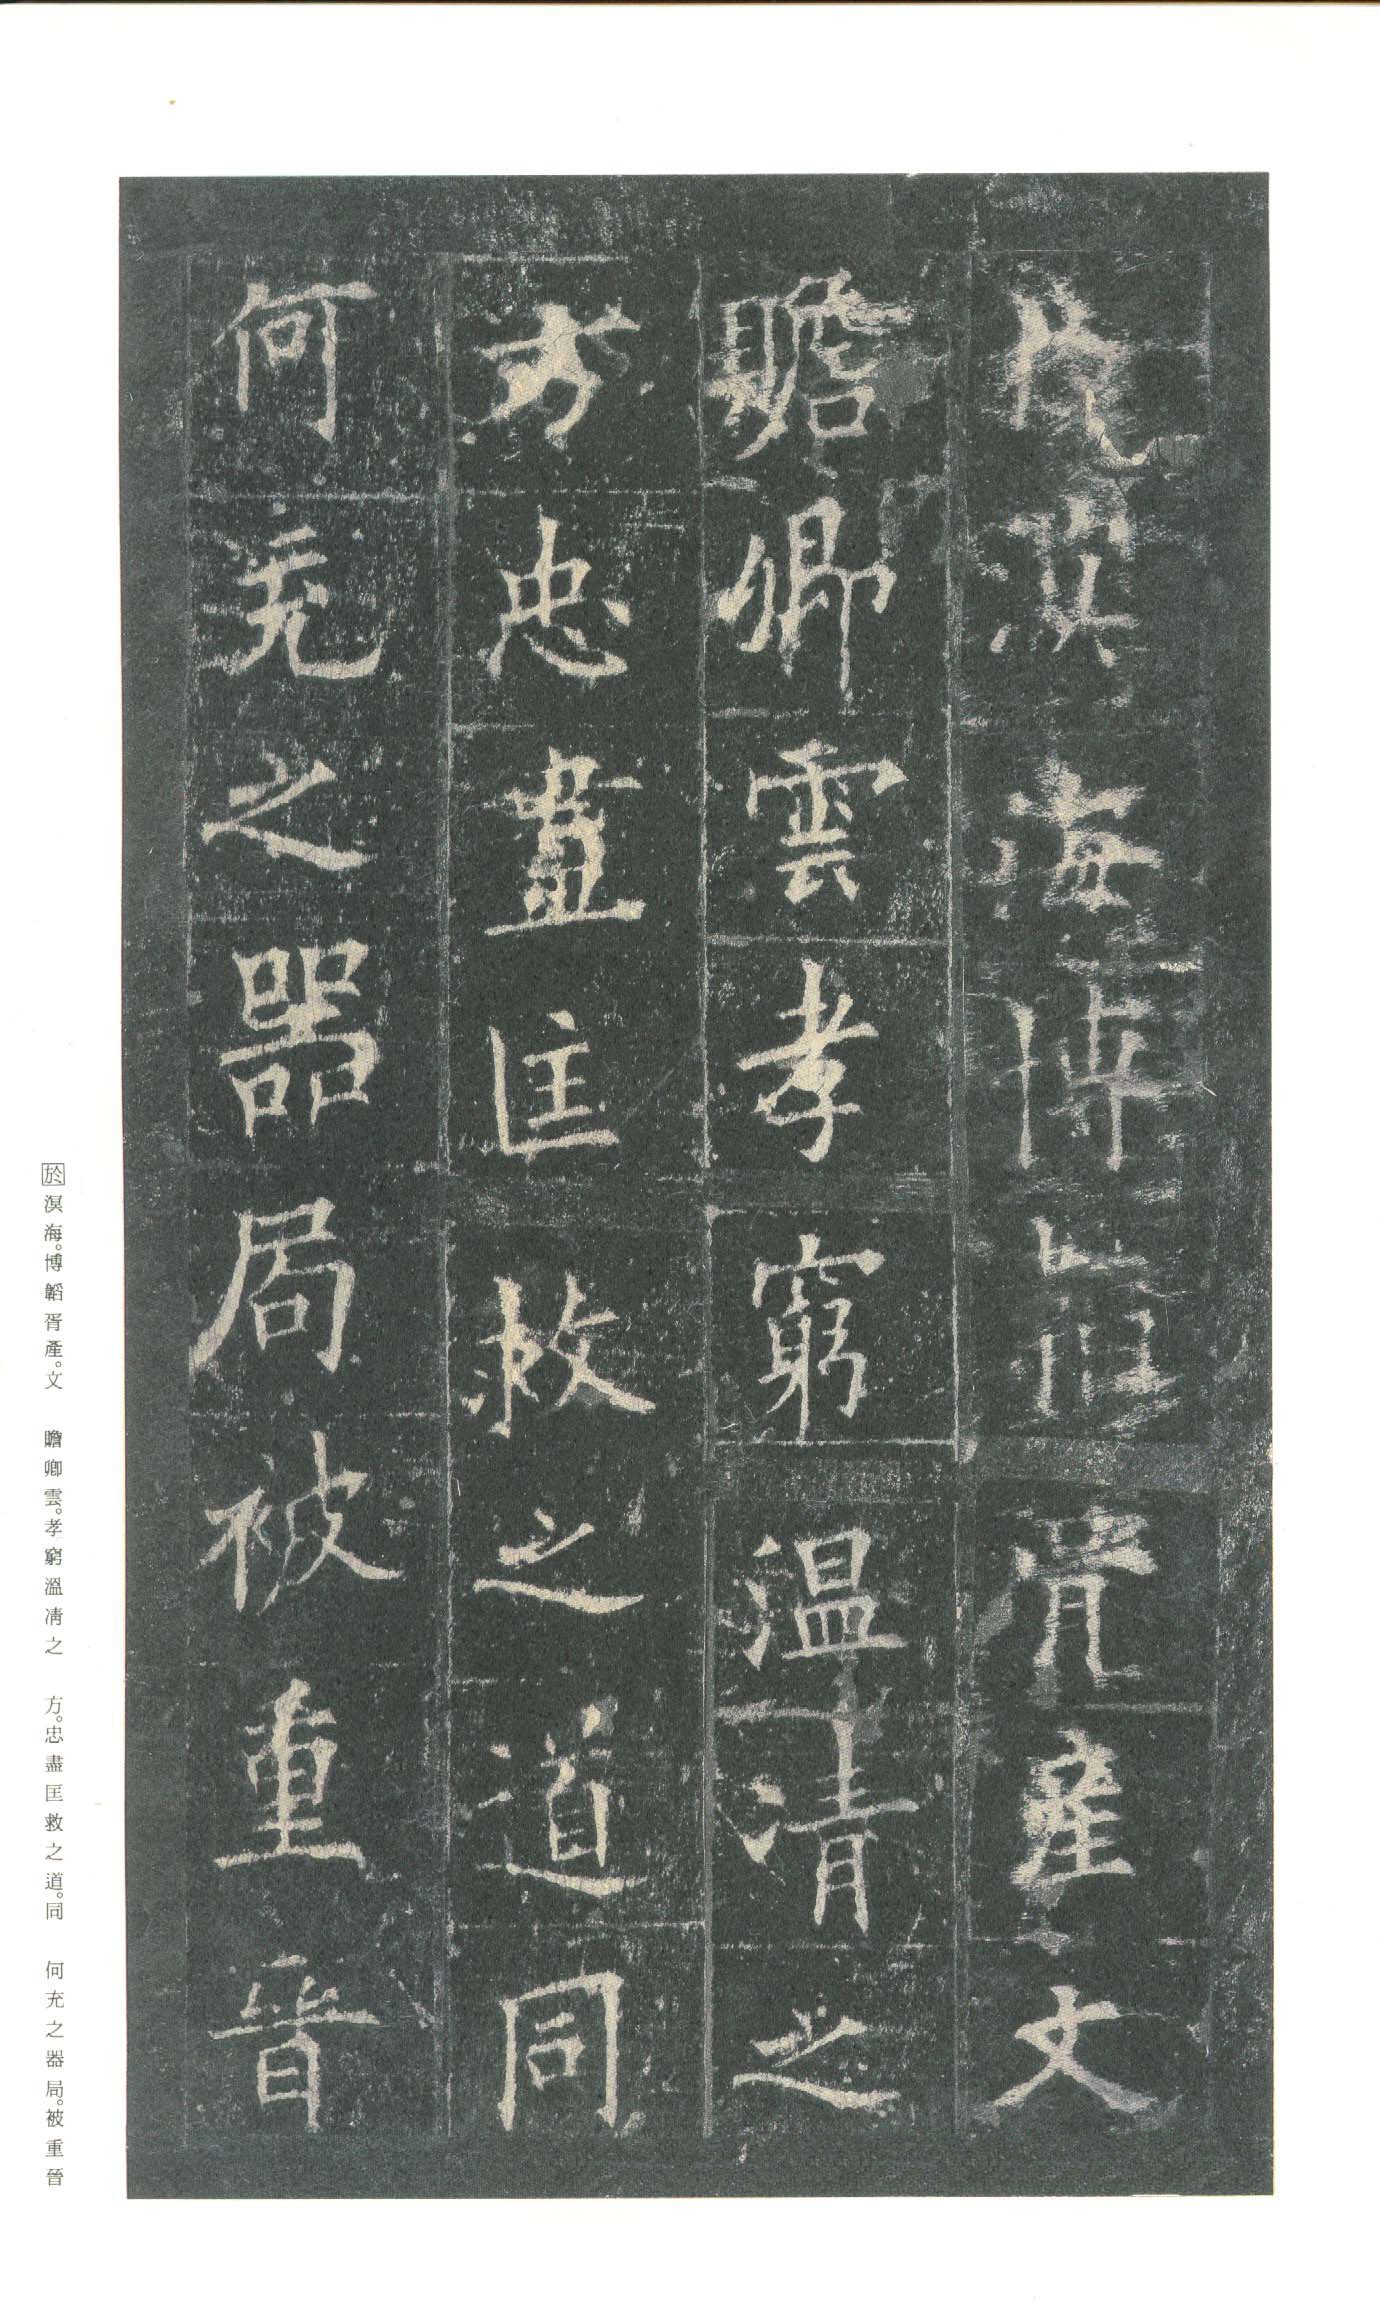 於溟海博韜胥產文
贍卿雲孝窮溫清之
方忠盡匡救之道同
何充之器局被重晉
於溟海。博韜胥產。文　贍卿雲。孝窮溫凊之　方。忠盡匡救之道。同　何充之器局。被重晉